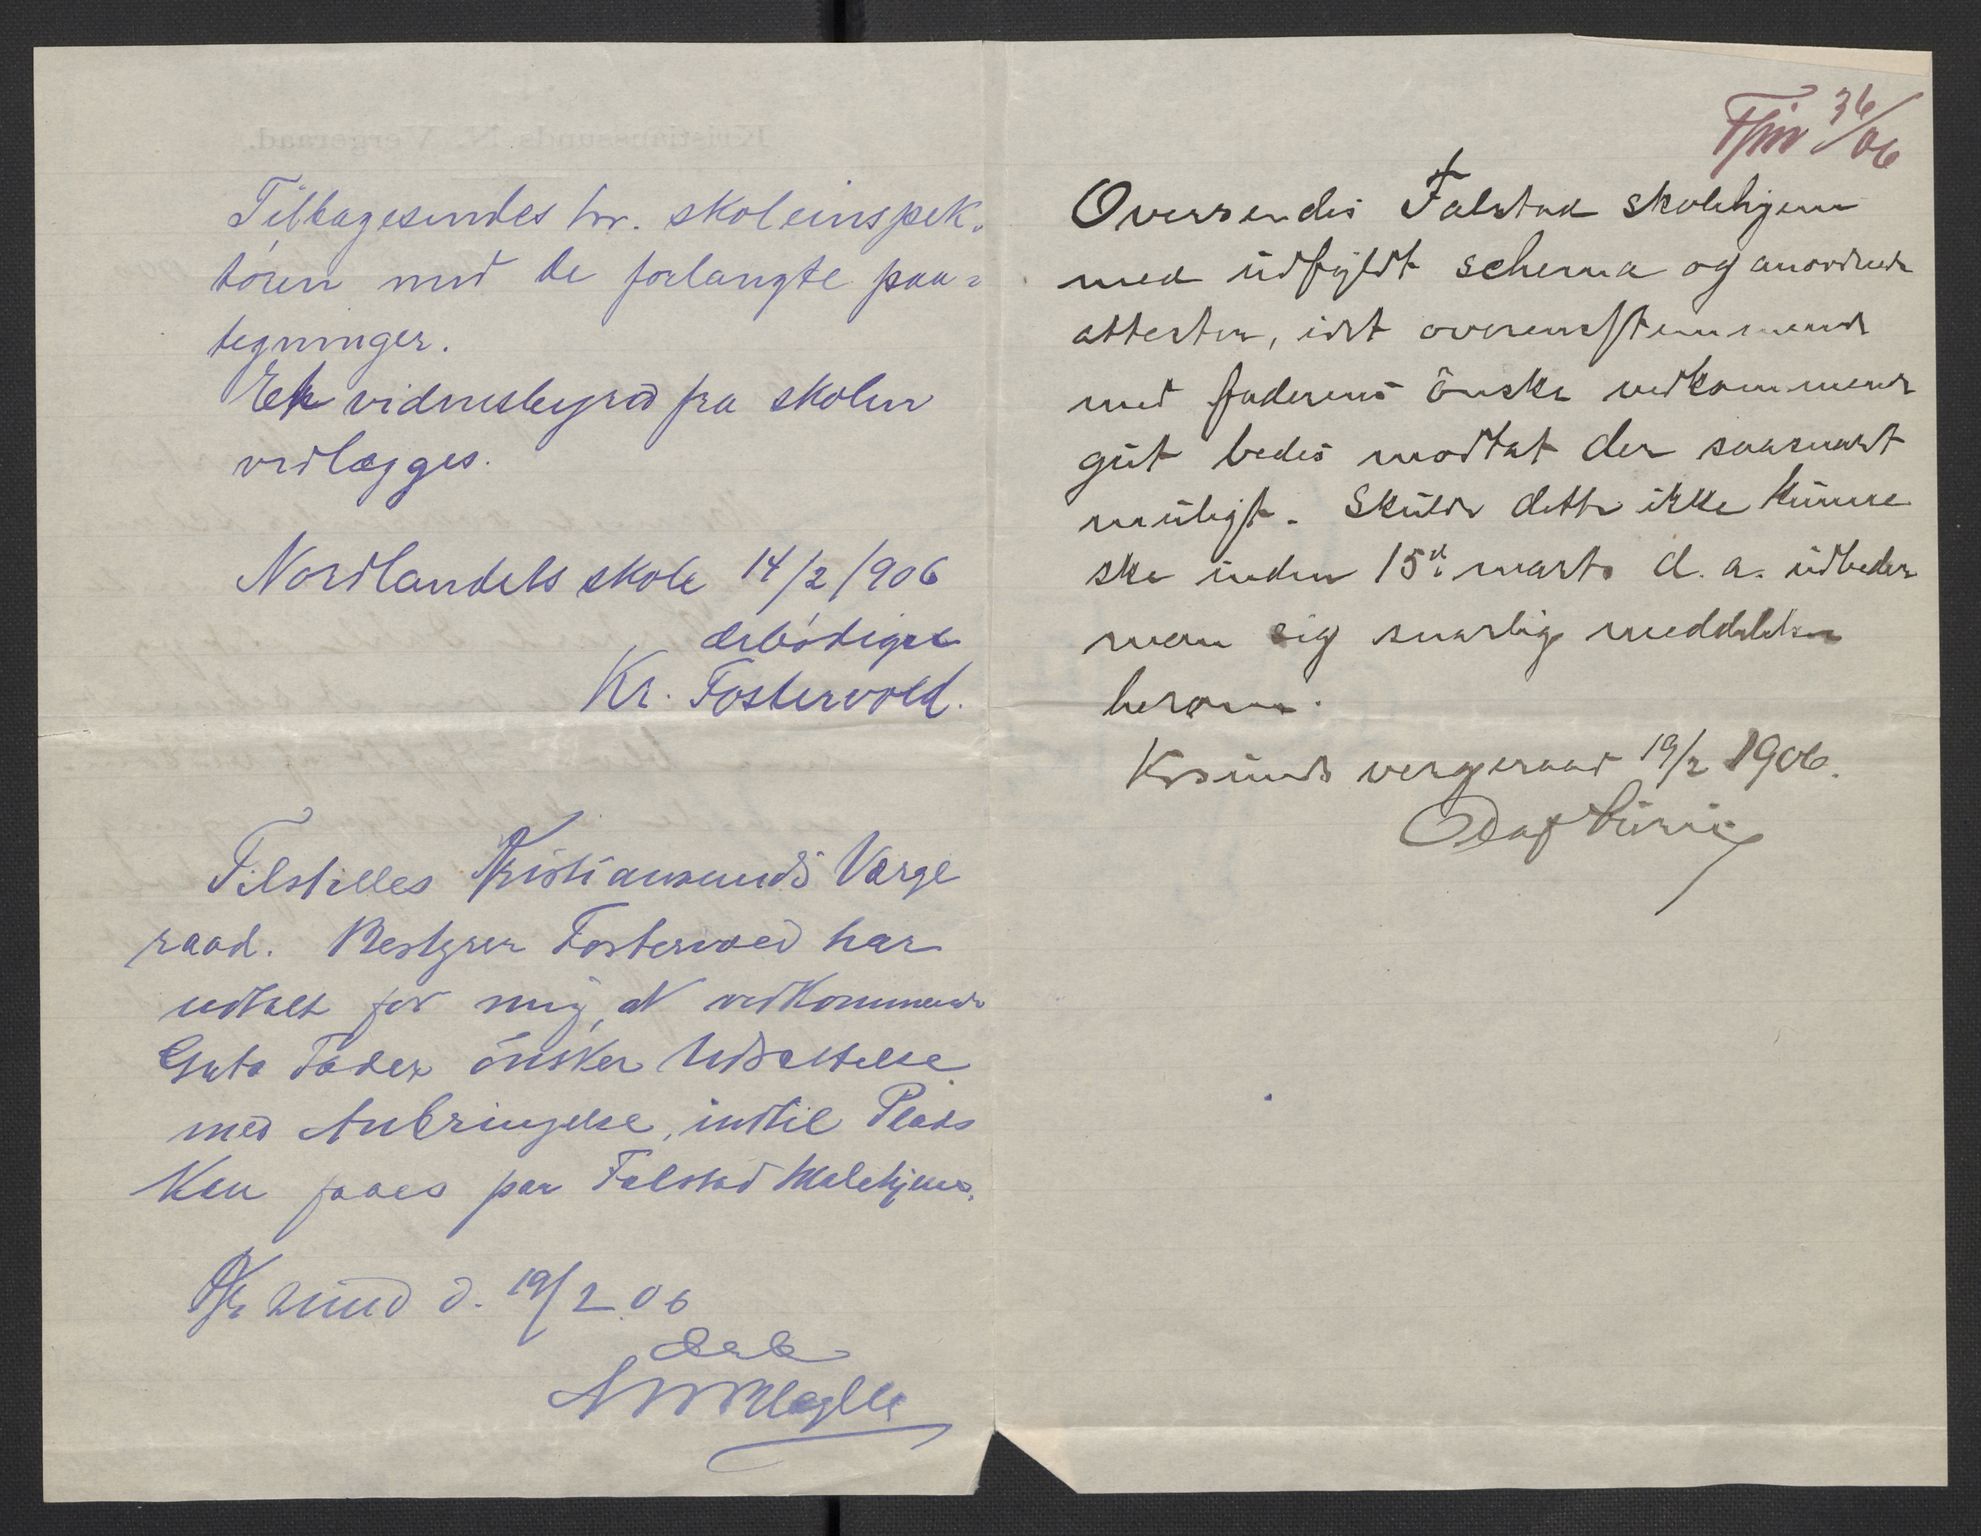 Tilbagesendes hr. skoleinspek-
tören med de forlangte paa-
tegninger.
Et vidnesbyrd fra skolen
vedlægges.
Nordlandets skole 14/2 1906
ærbødigst
Kr. Fostervold.
Tilstilles Kristiansunds Værge
raad. Bestyrer Fostervold har
udtalt for mig, at vedkommende
Guts Fader önsker Udsættelse
med Anbringelse, indtil Plads
Kan faaes paa Falstad Skolehjem.
Kr sund d. 19/2 06
Ærb
36/06
Oversendes Falstad skolehjem
med udfyldt schema og anordnede
attester, idet overensstemmende
med faderens önske vedkommende
gut bedes modtat der saasnart
muligt. Skulde dette ikke kunne
ske inden 15de marts d. a. udbeder
man sig snarlig meddelelse
herom.
Krsunds vergeraad 19/2 1906.
Olaf